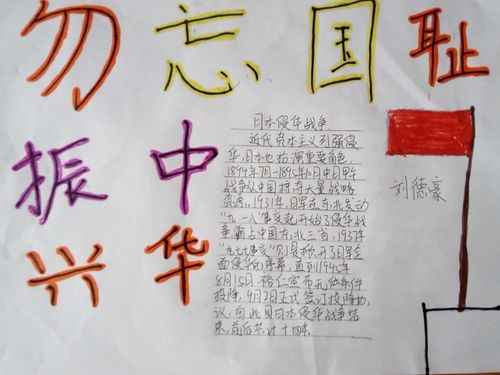 勿忘国耻
振中
兴华
日本侵华战争
近代资本主义列强侵
华,日本也扮演重要角色,
1894年7月-1895年4月中日甲午
战争以中国
1931年,日军在东北发动
"九一八"事变起开始了侵华战
争霸占中国东北三省,1937年
"七七事变"
面侵华的序幕,直到1945年
8月15日裕仁宣布无条件
投降,9月2日正式签订投降协
议,
日本侵华战争结
束,前后共计十四年
刘德豪